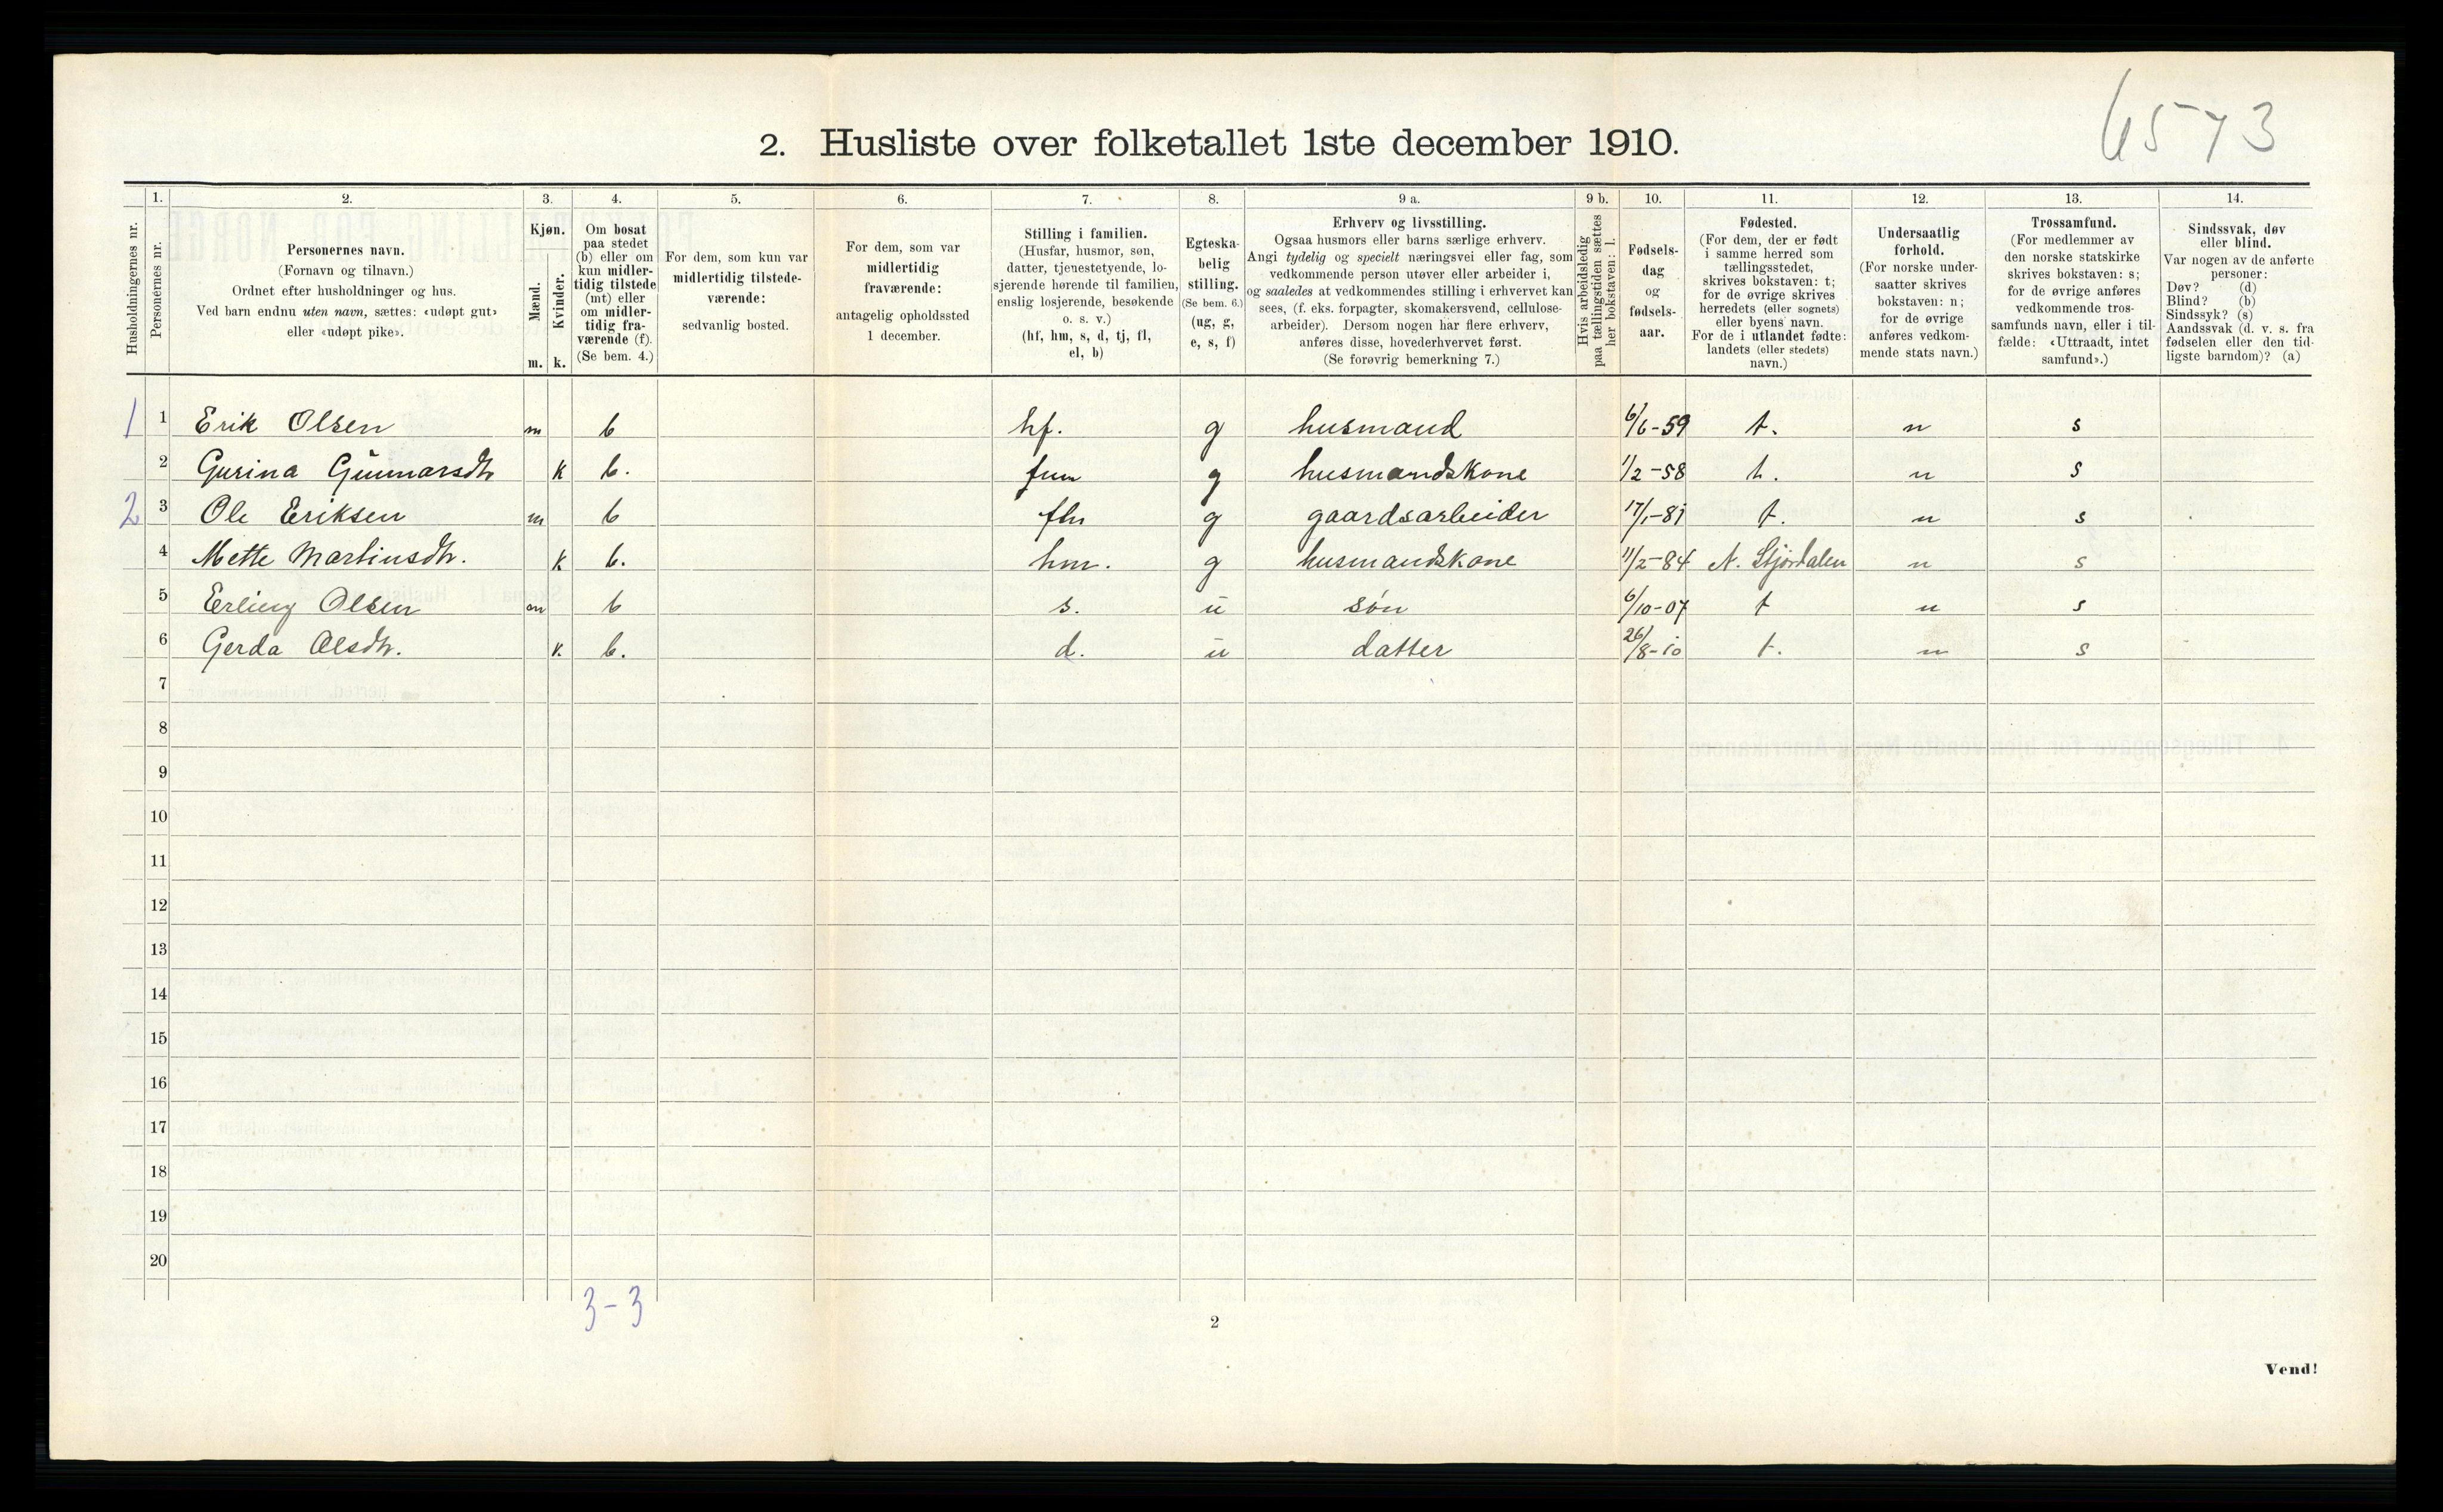 6573
2. Husliste over folketallet 1ste december 1910.
1. 2. 3. 4. 5. 6. 7. 8. 9 a. 9 b. 10. 11. 12. 13. 14.
Husholdningernes nr.
Personernes nr.
Personernes navn.
(Fornavn og tilnavn.)
Ordnet efter husholdninger og hus.
Ved barn endnu uten navn, sættes: «udøpt gut»
eller «udøpt pike».
Kjøn.
Mænd.
Kvinder.
m. k.
Om bosat
paa stedet
(b) eller om
kun midler-
tidig tilstede
(mt) eller
om midler-
tidig fra-
værende (f).
(Se bem. 4.)
For dem, som kun var
midlertidig tilstede-
værende:
sedvanlig bosted.
For dem, som var
midlertidig
fraværende:
antagelig opholdssted
1 december.
Stilling i familien.
(Husfar, husmor, søn,
datter, tjenestetyende, lo-
sjerende hørende til familien,
enslig losjerende, besøkende
o. s. v.)
(hf, hm, s, d, tj, fl,
el, b)
Egteska-
belig
stilling.
(Se bem. 6.)
(ug, g,
e, s, f)
Erhverv og livsstilling.
Ogsaa husmors eller barns særlige erhverv.
Angi tydelig og specielt næringsvei eller fag, som
vedkommende person utøver eller arbeider i,
og saaledes at vedkommendes stilling i erhvervet kan
sees, (f. eks. forpagter, skomakersvend, cellulose-
arbeider). Dersom nogen har flere erhverv,
anføres disse, hovederhvervet først.
(Se forøvrig bemerkning 7.)
Hvis arbeidsledig
paa tællingstiden sættes
her bokstaven: l.
Fødsels-
dag
og
fødsels-
aar.
Fødested.
(For dem, der er født
i samme herred som
tællingsstedet,
skrives bokstaven: t;
for de øvrige skrives
herredets (eller sognets)
eller byens navn.
For de i utlandet fødte:
landets (eller stedets)
navn.)
Undersaatlig
forhold.
(For norske under-
saatter skrives
bokstaven: n;
for de øvrige
anføres vedkom-
mende stats navn.)
Trossamfund.
(For medlemmer av
den norske statskirke
skrives bokstaven: s;
for de øvrige anføres
vedkommende tros-
samfunds navn, eller i til-
fælde: «Uttraadt, intet
samfund».)
Sindssvak, døv
eller blind.
Var nogen av de anførte
personer:
Døv? (d)
Blind? (b)
Sindssyk? (s)
Aandssvak (d. v. s. fra
fødselen eller den tid-
ligste barndom)? (a)
1 1 Erik Olsen m b hf. g husmand 6/6-59 t. n s
2 Gurina Gunnarsdtr k b. g husmandskone 1/2-58 t. n s
2 3 Ole Eriksen m b g gaardsarbeider 17/1-81 t. n s
4 Mette Martinsdtr. k b. hm. g husmandskone 11/2-84 N. Stjørdalen n s
5 Erling Olsen m b s. u søn 6/10-07 t n s
6 Gerda Olsdtr. k. b. d. u datter 26/8-10 t. n s
7
8
9
10
11
12
13
14
15
16
17
18
19
20
3-3
2
Vend!